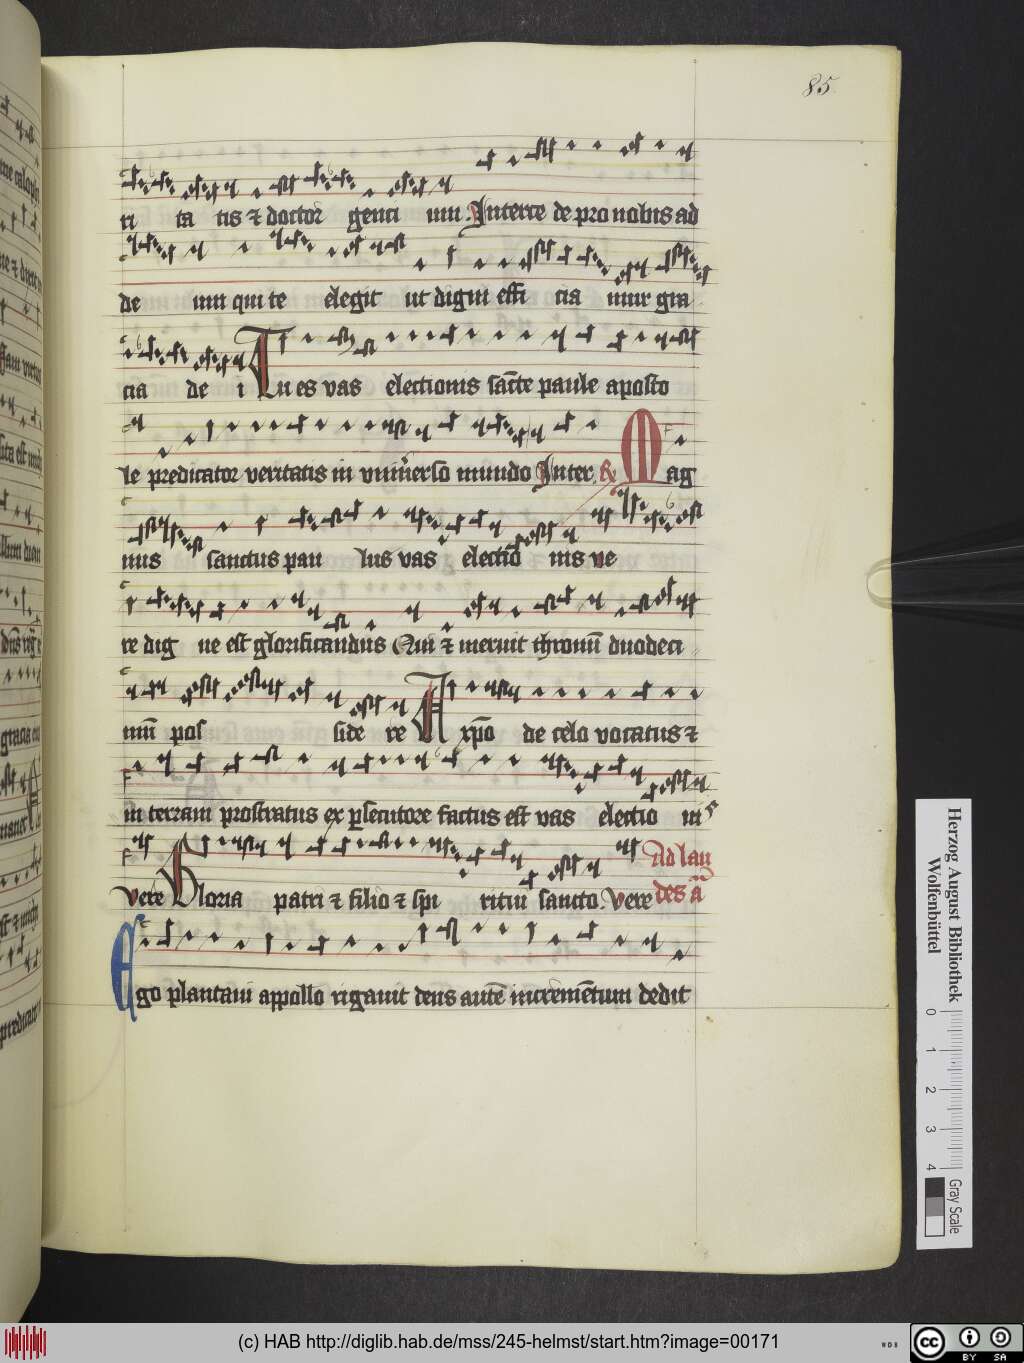 85
ri ta tis ⁊ doctor genti um. Interce de pro nobis ad
de um qui te elegit ut digni effi cia mur gra
cia de i Tu es vas electionis sāctē paule aposto
le predicator veritatis in vniũerso mundo Inter. R̷ Mag
nus sanctus pau lus vas electiō nis ve
re dig ne est glorificandus Qui ⁊ meruit thronū duodeci
mū pos side re A xp̄o de celo vocatus ⁊
in terram prostratus ex p̱secutore factus est vas electio nis
vere Gloria patri ⁊ filio ⁊ spi ritui sancto. Vere Ad lau
des a͞
Ego plantaui appollo rigauit deus autē incremētum dedit
Herzog August Bibliothek
Wolfenbüttel
0 1 2 3 4
Gray Scale
(c) HAB http://diglib.hab.de/mss/245-helmst/start.htm?image=00171
WDB
cc BY SA